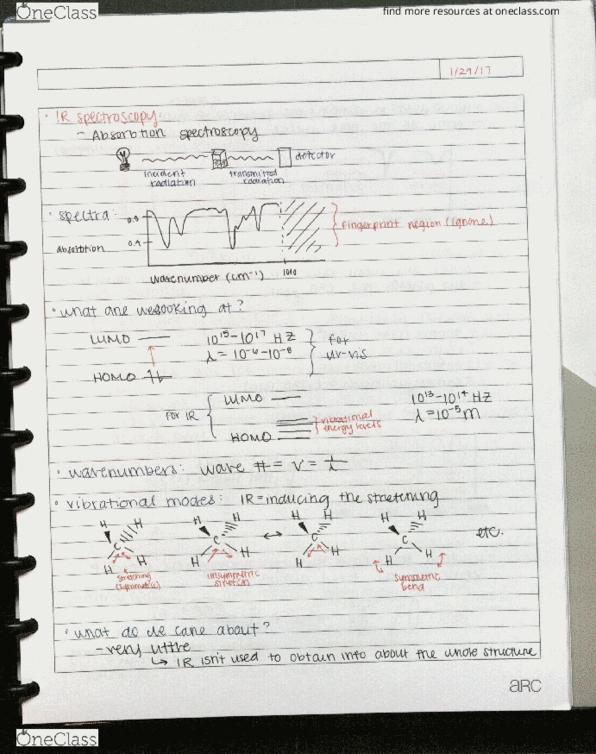 OneClass
find more resources at oneclass.com
1/29/17
• IR spectroscopy:
- Absorption spectroscopy
detector
incident radiation
transmitted radiation
• spectra:
0.8
0.4
absorbtion
wavenumber (cm⁻¹)
1000
Fingerprint region (ignore)
• what are we looking at?
LUMO
HOMO
10¹⁵-10¹⁷ HZ
λ = 10⁻⁶-10⁻⁸
for
uv-vis
FOR IR
LUMO
HOMO
vibrational
energy levels
10¹³-10¹⁴ HZ
λ=10⁻⁵m
• wavenumbers: wave # = v = 1/λ
• vibrational modes: IR = inducing the stretching
H H H H H H H H
C C C C
H H H H H H H H
etc.
stretching
(symmetric)
unsymmetric
stretch
symmetric
bend
• what do we care about?
- very little
↳ IR isn't used to obtain info about the whole structure
ARC
OneClass